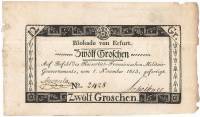 Blokade von Erfurt.
Zwölf Groschen
Auf Befehl des Kaiserlich-Französischen Militair-
Gouvernements, am 1. November 1813, gefertigt.
No. 2428
Zwölf Groschen